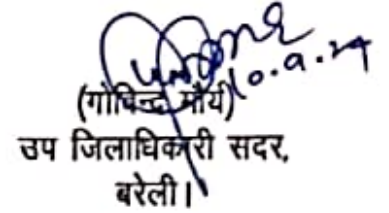 10.9.24
(गोविन्द मौर्य)
उप जिलाधिकारी सदर,
बरेली।